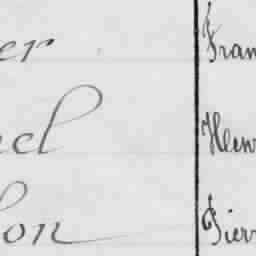 er Fran
el Henr
on Pierr